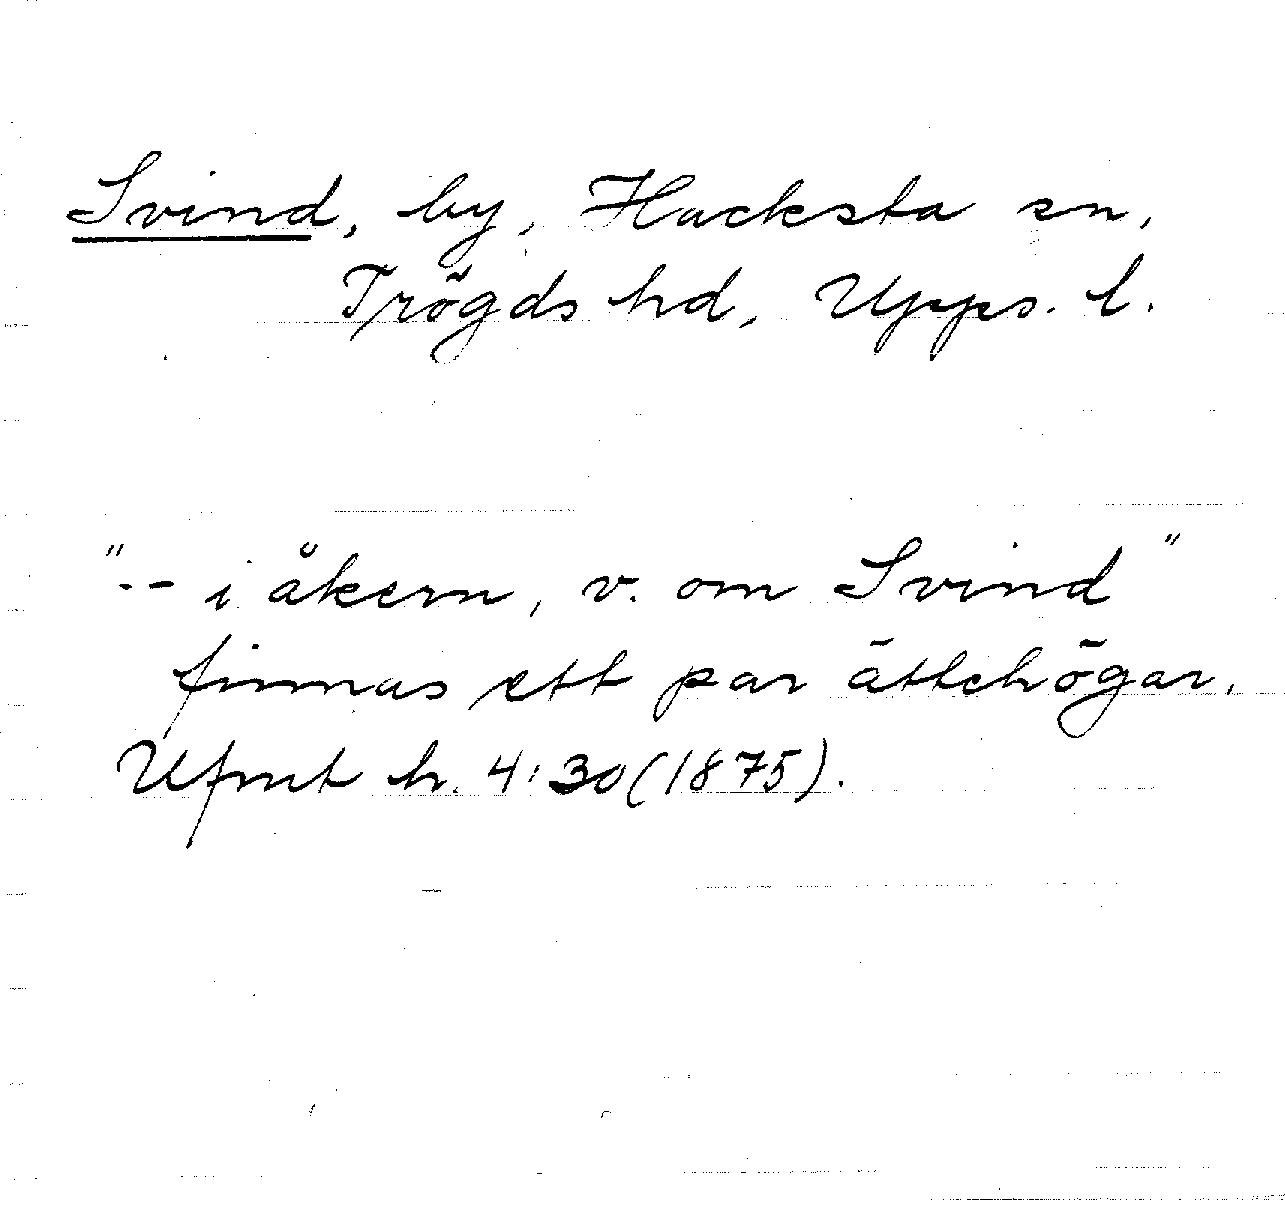 Svind, by, Hacksta sn,
Trögds hd, Upps. l.
"-- i åkern, v. om Svind"
finnas ett par ättehögar.
Ufmt h. 4:30 (1875).